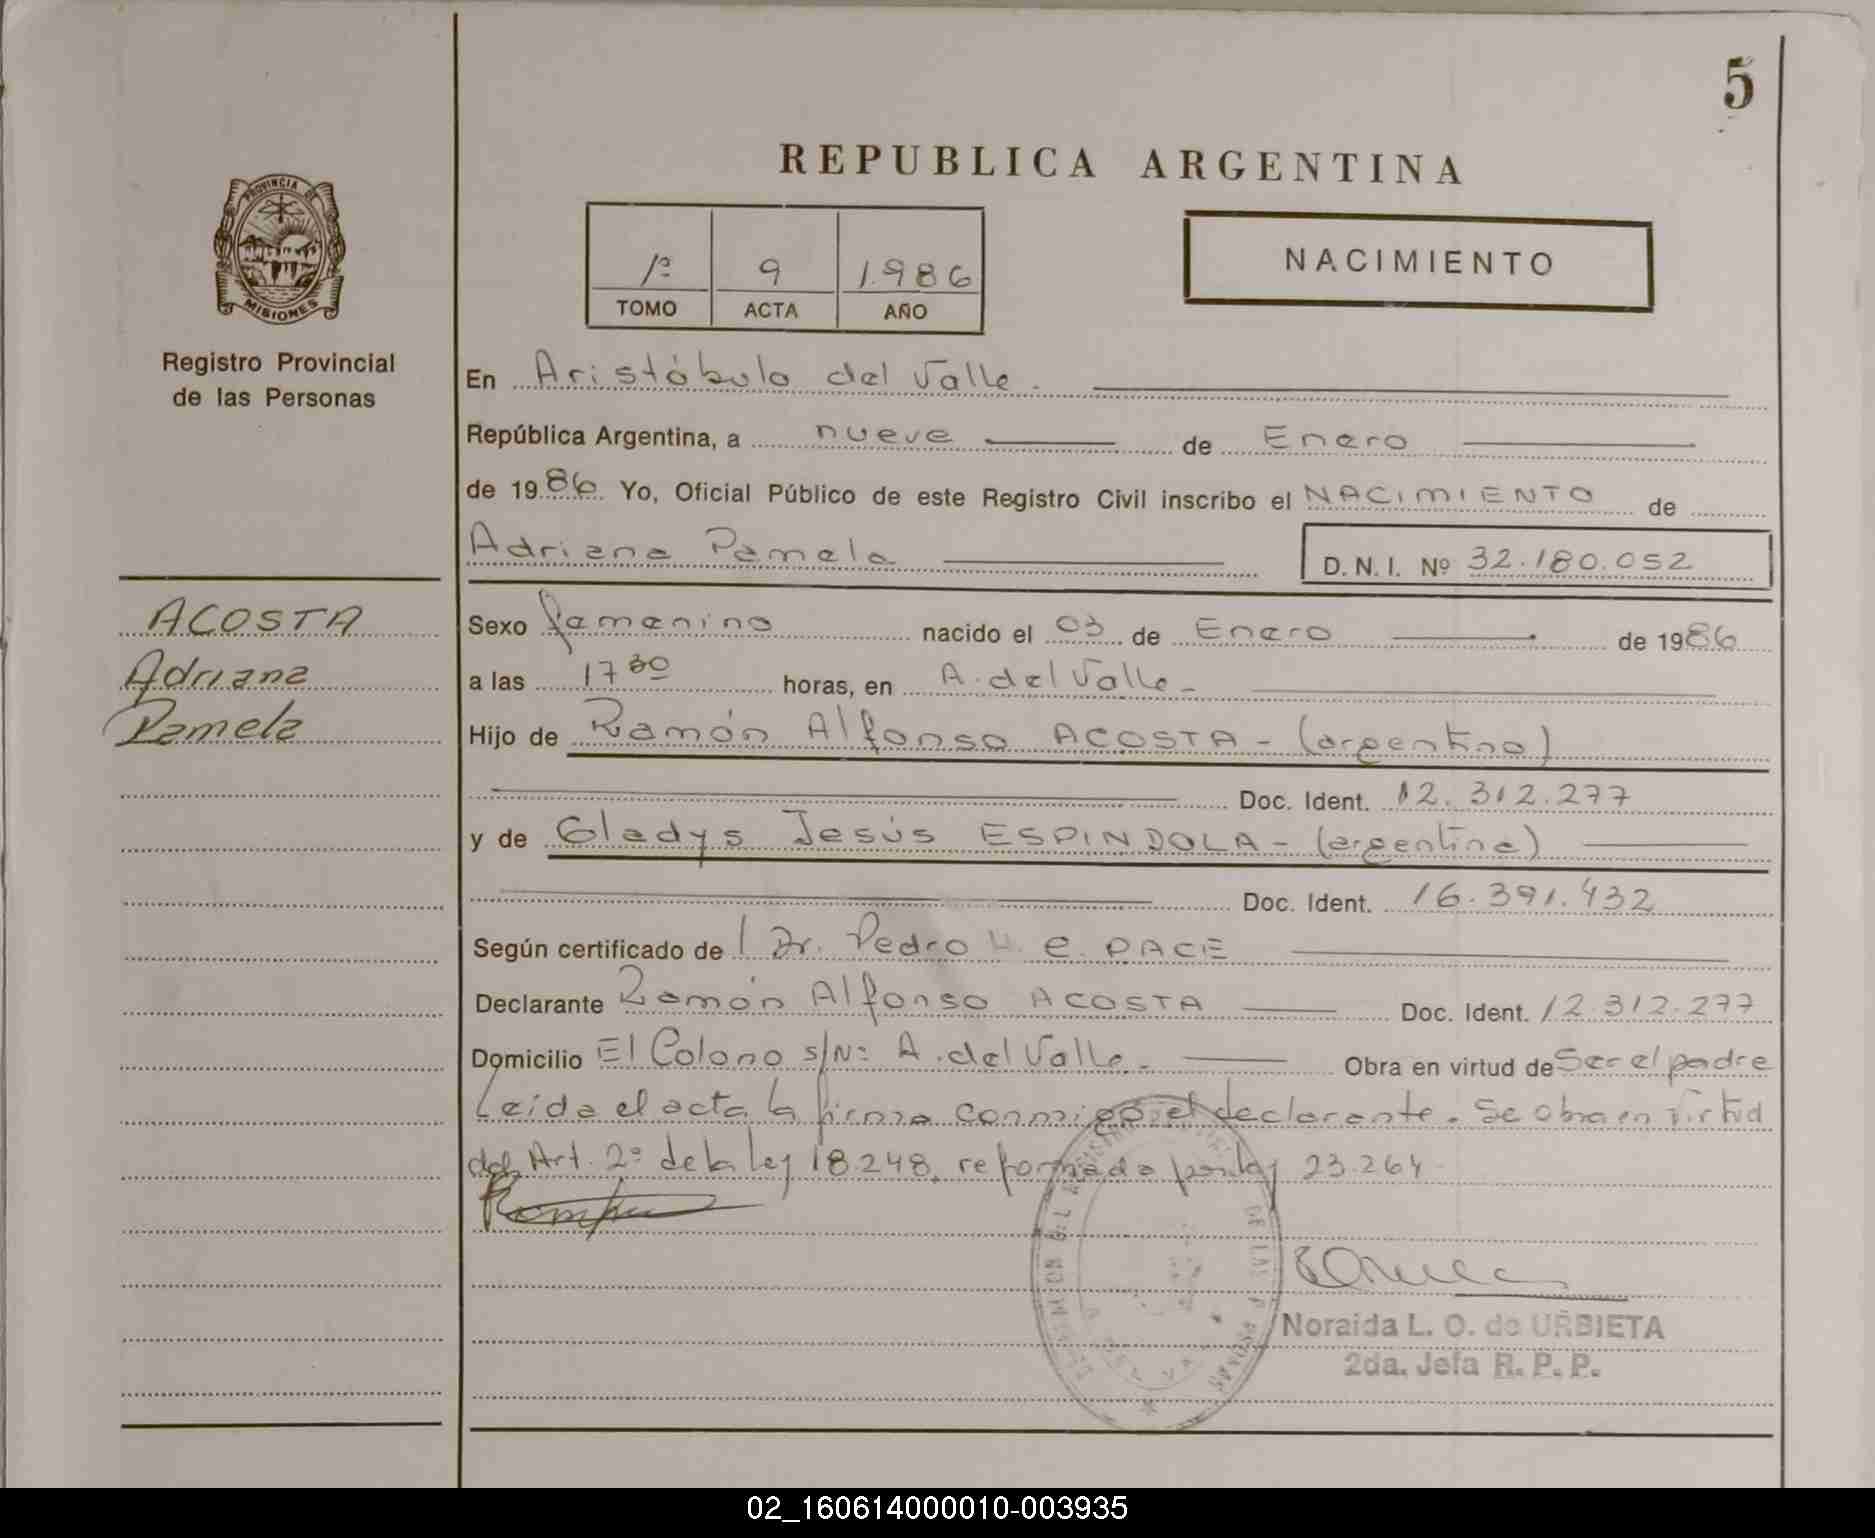 5
REPUBLICA ARGENTINA
PROVINCIA DE
MISIONES
1º 9 1.986
TOMO ACTA AÑO
NACIMIENTO
Registro Provincial
de las Personas
En Aristóbulo del Valle.
República Argentina, a nueve de Enero
de 1986. Yo, Oficial Público de este Registro Civil inscribo el NACIMIENTO de
Adriana Pamela D.N.I. Nº 32.180.052
ACOSTA
Adriana
Pamela
Sexo femenino nacido el 03 de Enero de 1986
a las 17 30 horas, en A. del Valle -
Hijo de Ramón Alfonso ACOSTA - (argentino)
Doc. Ident. 12.312.277
y de Gladys Jesús ESPINDOLA - (argentina)
Doc. Ident. 16.391.432
Según certificado de Dr. Pedro H. e. PACE
Declarante Ramón Alfonso ACOSTA Doc. Ident. 12.312.277
Domicilio El Colono s/Nº A. del Valle - Obra en virtud de Ser el padre
Leida el acta la firma conmigo el declarante. Se obra en virtud
del Art. 2º de la ley 18.248, reformada por ley 23.264.
Noraida L. O. de URBIETA
2da. Jefa R. P. P.
02_160614000010-003935